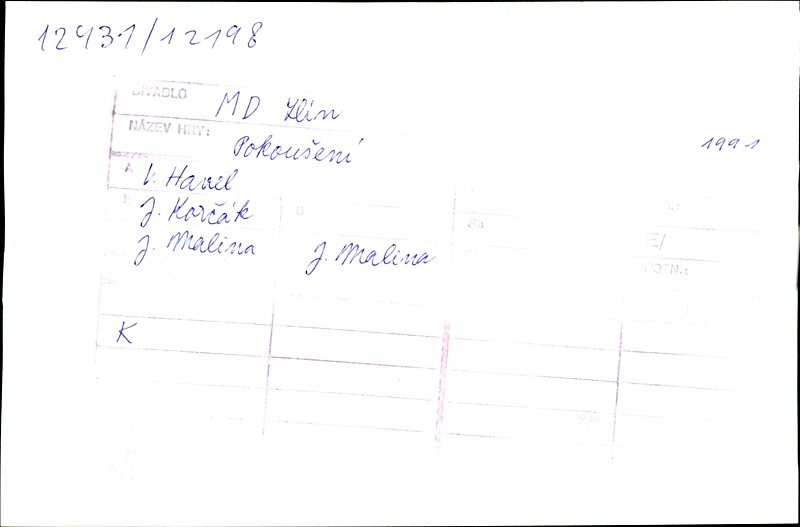 12431/12198
DIVADLO MD Zlín
NÁZEV HRY: Pokoušení 1991
A V. Havel
J. Korčák
J. Malina J. Malina
POZN.:
K